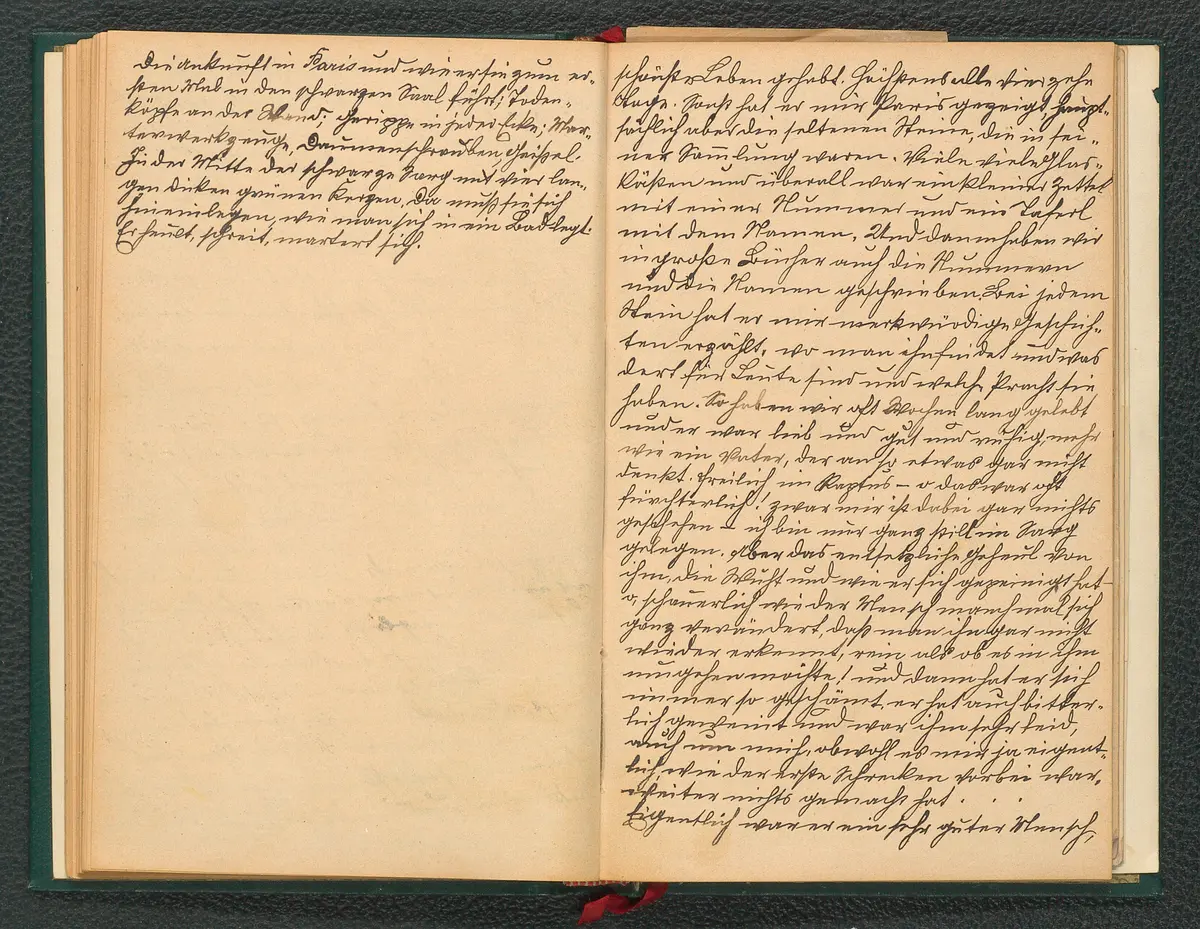 Die Ankunft in Paris und wie er sie zum er-
sten Mal in den schwarzen Saal führt; Toden-
köpfe an der Wand; Gerippe in jeder Ecke; Mar-
terwerkzeuge, Daumenschrauben, Geißel.
In der Mitte der schwarze Sarg mit vier lan-
gen dicken grünen Kerzen, da muß sie sich
hineinlegen, wie man sich in ein Bad legt.
Er heult, schreit, martert sich.
schönste Leben gehabt. Höchstens alle vierzehn
Tage. Sonst hat er mir Paris gezeigt, haupt-
sächlich aber die seltenen Steine, die in sei-
ner Sammlung waren. Viele viele Glas-
kästen und überall war ein kleiner Zettel
mit einer Nummer und ein Taferl
mit dem Namen. Und dann haben wir
in große Bücher auch die Nummern
und die Namen geschrieben. Bei jedem
Stein hat er mir merkwürdige Geschich-
ten erzählt, wo man ihn findet und was
dort für Leute sind und welche Pracht sie
haben. So haben wir oft Wochen lang gelebt
und er war lieb und gut und ruhig, mehr
wie ein Vater, der an so etwas gar nicht
denkt. Freilich im Raptus – o das war oft
fürchterlich! zwar mir ist dabei gar nichts
geschehen – ich bin nur ganz still im Sarg
gelegen. Aber das entsetzliche Geheul von
ihm, die Wuht und wie er sich gepeinigt hat –
o, schauerlich wie der Mensch manchmal sich
ganz verändert, daß man ihn gar nicht
wieder erkennt, rein als ob es in ihm
umgehen möchte! und dann hat er sich
immer so geschämt, er hat auch bitter-
lich geweint und war ihm sehr leid,
auch um mich, obwohl es mir ja eigent-
lich, wie der erste Schrecken vorbei war,
weiter nichts gemacht hat . . .
Eigentlich war er ein sehr guter Mensch,